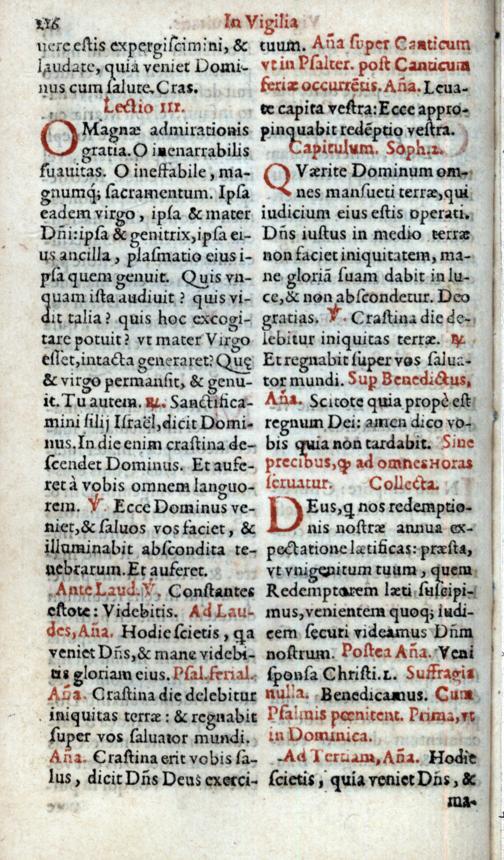 216 In Vigilia
uere estis expergiscimini, &
laudate, quia veniet Domi-
nus cum salute. Cras.
Lectio III.
O Magnæ admirationis
gratia. O inenarrabilis
suauitas. O ineffabile, ma-
gnumq́; sacramentum. Ipsa
eadem virgo, ipsa & mater
Dñi: ipsa & genitrix, ipsa ei-
us ancilla, plasmatio eius i-
psa quem genuit. Quis vn-
quam ista audiuit? quis vi-
dit talia? quis hoc excogi-
tare potuit? vt mater Virgo
esset, intacta generaret? Quę
& virgo permansit, & genu-
it. Tu autem. ℟. Sanctifica-
mini filij Israël, dicit Domi-
nus. In die enim crastina de-
scendet Dominus. Et aufe-
ret à vobis omnem languo-
rem. ℣. Ecce Dominus ve-
niet, & saluos vos faciet, &
illuminabit abscondita te-
nebrarum. Et auferet.
Ante Laud. ℣. Constantes
estote: Videbitis. Ad Lau-
des, Aña. Hodie scietis, qa
veniet Dñs, & mane videbi-
tis gloriam eius. Psal. ferial.
Aña. Crastina die delebitur
iniquitas terræ: & regnabit
super vos saluator mundi.
Aña. Crastina erit vobis sa-
lus, dicit Dñs Deus exerci-
tuum. Aña super Canticum
vt in Psalter. post Canticum
feriæ occurrẽtis. Aña. Leua-
te capita vestra: Ecce appro-
pinquabit redẽptio vestra.
Capitulum. Soph. 2.
QVærite Dominum om-
nes mansueti terræ, qui
iudicium eius estis operati.
Dñs iustus in medio terræ
non faciet iniquitatem, ma-
ne gloriã suam dabit in lu-
ce, & non abscondetur. Deo
gratias. ℣. Crastina die de-
lebitur iniquitas terræ. ℟.
Et regnabit super vos salua-
tor mundi. Sup Benedictus,
Aña. Scitote quia propè est
regnum Dei: amen dico vo-
bis quia non tardabit. Sine
precibus, ꝙ ad omnes Horas
seruatur. Collecta.
DEus, q nos redemptio-
nis nostræ annua ex-
pectatione lætificas: præsta,
vt vnigenitum tuum, quem
Redemptorem læti suscipi-
mus, venientem quoq; iudi-
cem securi videamus Dñm
nostrum. Postea Aña. Veni
sponsa Christi. L. Suffragia
nulla. Benedicamus. Cum
Psalmis pœnitent. Prima, vt
in Dominica.
Ad Tertiam, Aña. Hodie
scietis, quia veniet Dñs, &
ma-